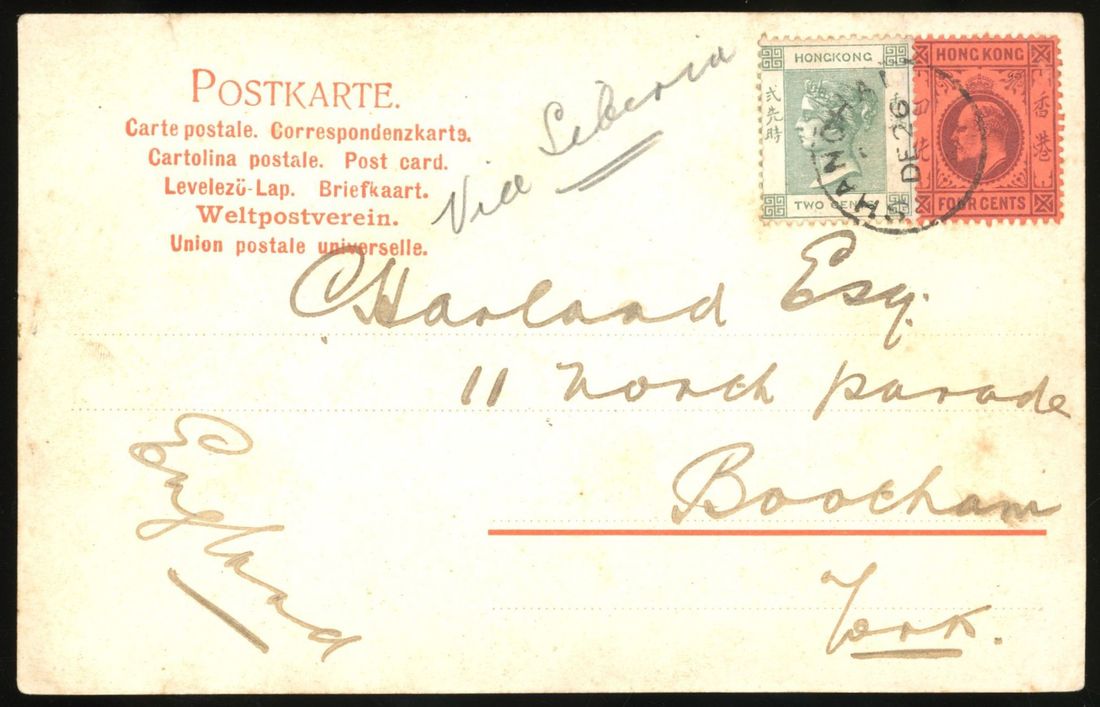 POSTKARTE.
Carte postale. Correspondenzkarte.
Cartolina postale. Post card.
Levelező-Lap. Briefkaart.
Weltpostverein.
Union postale universelle.
Via Siberia
HONGKONG
弍先時
TWO CENTS
HONG KONG
香港
FOUR CENTS
SHANGHAI
DE 26
C Harland Esq.
11 North parade
Bootham
York.
England